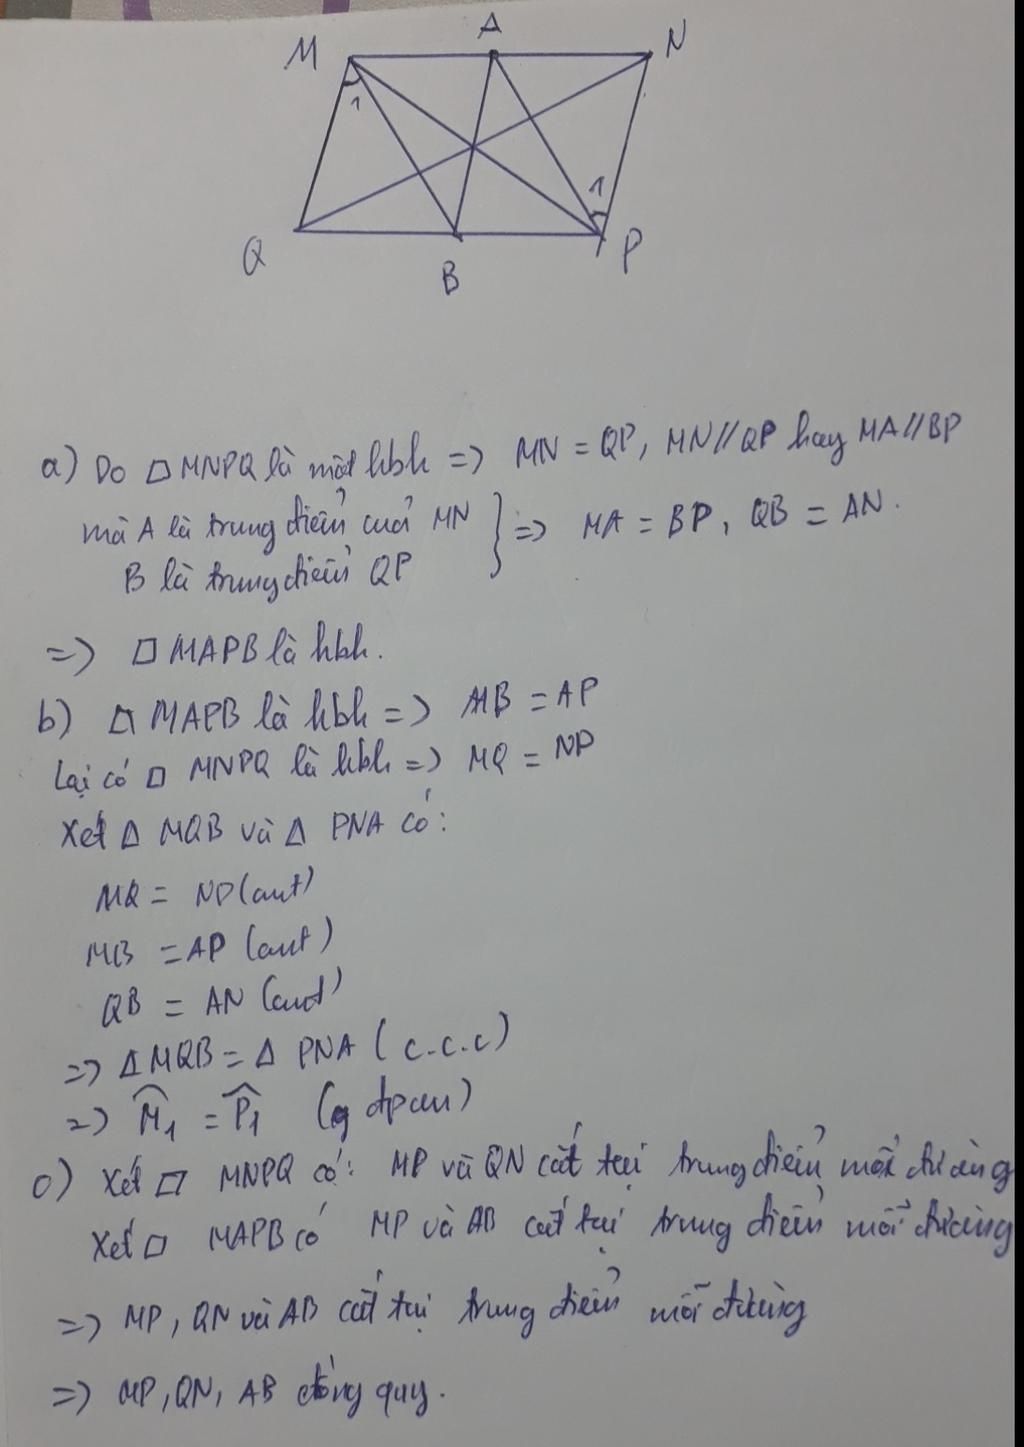 M A N
1
1
Q B P
a) Do □ MNPQ là một hbh => MN = QP, MN//QP hay MA//BP
mà A là trung điểm của MN
B là trung điểm QP
} => MA = BP, QB = AN.
=> □ MAPB là hbh.
b) □ MAPB là hbh => MB = AP
Lại có □ MNPQ là hbh => MQ = NP
Xét Δ MQB và Δ PNA có:
MQ = NP (cmt)
MB = AP (cmt)
QB = AN (cmt)
=> Δ MQB = Δ PNA (c.c.c)
=> M̂₁ = P̂₁ (đpcm)
c) Xét □ MNPQ có: MP và QN cắt tại trung điểm mỗi đường
Xét □ MAPB có MP và AB cắt tại trung điểm mỗi đường
=> MP, QN và AB cắt tại trung điểm mỗi đường
=> MP, QN, AB đồng quy.